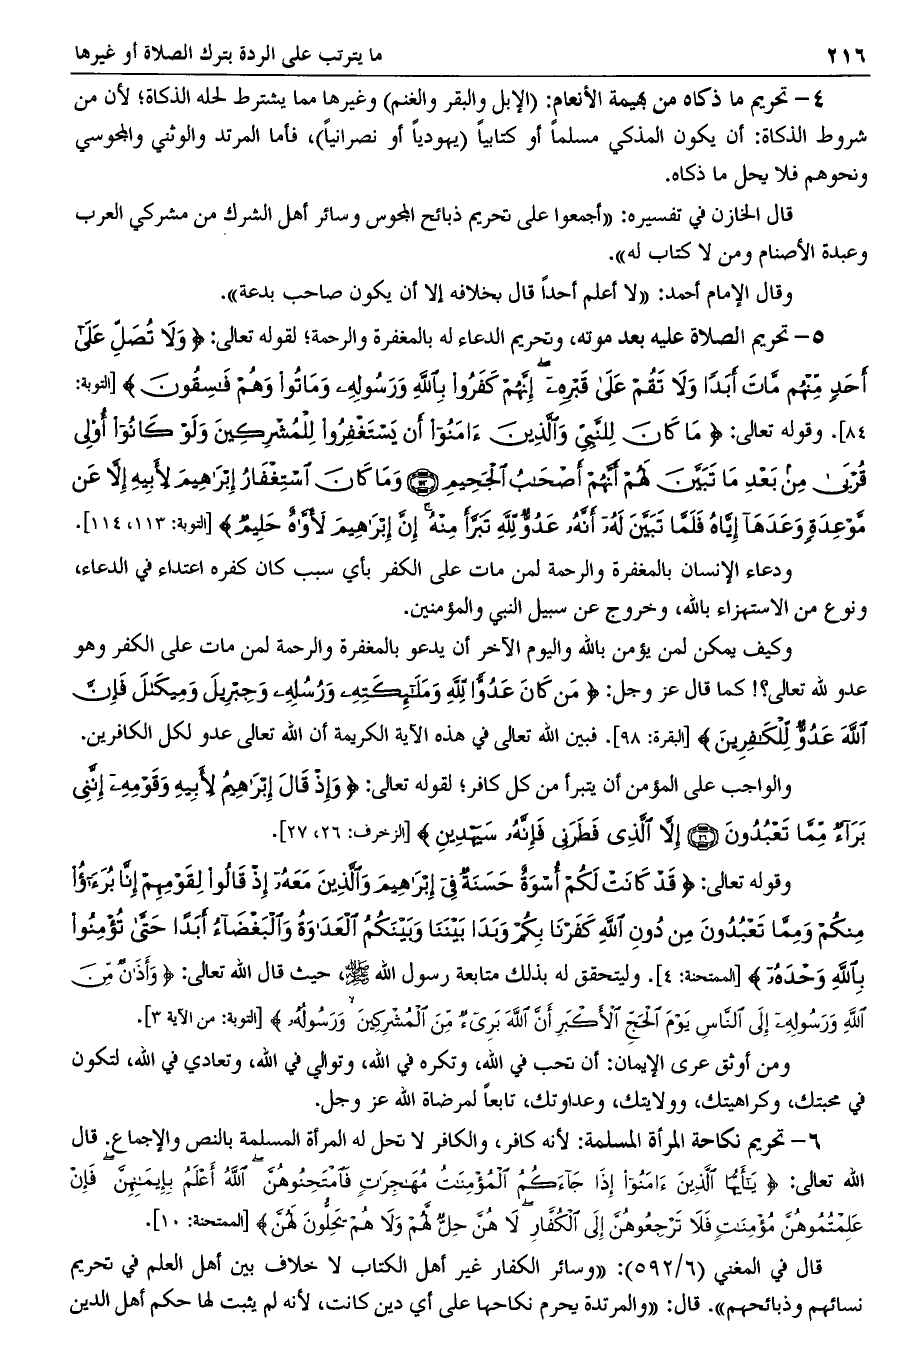 ٢١٦ ما يترتب على الردة بترك الصلاة أو غيرها
٤ – تحريم ما ذكاه من بهيمة الأنعام: (الإبل والبقر والغنم) وغيرها مما يشترط لحله الذكاة؛ لأن من
شروط الذكاة: أن يكون المذكي مسلماً أو كتابياً (يهودياً أو نصرانياً)، فأما المرتد والوثني والمجوسي
ونحوهم فلا يحل ما ذكاه.
قال الخازن في تفسيره: «أجمعوا على تحريم ذبائح المجوس وسائر أهل الشرك من مشركي العرب
وعبدة الأصنام ومن لا كتاب له».
وقال الإمام أحمد: «لا أعلم أحداً قال بخلافه إلا أن يكون صاحب بدعة».
٥ – تحريم الصلاة عليه بعد موته، وتحريم الدعاء له بالمغفرة والرحمة؛ لقوله تعالى: ﴿ وَلَا تُصَلِّ عَلَىٰٓ
أَحَدٖ مِّنۡهُم مَّاتَ أَبَدٗا وَلَا تَقُمۡ عَلَىٰ قَبۡرِهِۦٓۖ إِنَّهُمۡ كَفَرُواْ بِٱللَّهِ وَرَسُولِهِۦ وَمَاتُواْ وَهُمۡ فَٰسِقُونَ ﴾ [التوبة:
٨٤]. وقوله تعالى: ﴿ مَا كَانَ لِلنَّبِيِّ وَٱلَّذِينَ ءَامَنُوٓاْ أَن يَسۡتَغۡفِرُواْ لِلۡمُشۡرِكِينَ وَلَوۡ كَانُوٓاْ أُوْلِي
قُرۡبَىٰ مِنۢ بَعۡدِ مَا تَبَيَّنَ لَهُمۡ أَنَّهُمۡ أَصۡحَٰبُ ٱلۡجَحِيمِ ﴿١١٣﴾ وَمَا كَانَ ٱسۡتِغۡفَارُ إِبۡرَٰهِيمَ لِأَبِيهِ إِلَّا عَن
مَّوۡعِدَةٖ وَعَدَهَآ إِيَّاهُ فَلَمَّا تَبَيَّنَ لَهُۥٓ أَنَّهُۥ عَدُوّٞ لِّلَّهِ تَبَرَّأَ مِنۡهُۚ إِنَّ إِبۡرَٰهِيمَ لَأَوَّٰهٌ حَلِيمٞ ﴾ [التوبة: ١١٣، ١١٤].
ودعاء الإنسان بالمغفرة والرحمة لمن مات على الكفر بأي سبب كان كفره اعتداء في الدعاء،
ونوع من الاستهزاء بالله، وخروج عن سبيل النبي والمؤمنين.
وكيف يمكن لمن يؤمن بالله واليوم الآخر أن يدعو بالمغفرة والرحمة لمن مات على الكفر وهو
عدو لله تعالى؟! كما قال عز وجل: ﴿ مَن كَانَ عَدُوّٗا لِّلَّهِ وَمَلَٰٓئِكَتِهِۦ وَرُسُلِهِۦ وَجِبۡرِيلَ وَمِيكَىٰلَ فَإِنَّ
ٱللَّهَ عَدُوّٞ لِّلۡكَٰفِرِينَ ﴾ [البقرة: ٩٨]. فبين الله تعالى في هذه الآية الكريمة أن الله تعالى عدو لكل الكافرين.
والواجب على المؤمن أن يتبرأ من كل كافر؛ لقوله تعالى: ﴿ وَإِذۡ قَالَ إِبۡرَٰهِيمُ لِأَبِيهِ وَقَوۡمِهِۦٓ إِنَّنِي
بَرَآءٞ مِّمَّا تَعۡبُدُونَ ﴿٢٦﴾ إِلَّا ٱلَّذِي فَطَرَنِي فَإِنَّهُۥ سَيَهۡدِينِ ﴾ [الزخرف: ٢٦، ٢٧].
وقوله تعالى: ﴿ قَدۡ كَانَتۡ لَكُمۡ أُسۡوَةٌ حَسَنَةٞ فِيٓ إِبۡرَٰهِيمَ وَٱلَّذِينَ مَعَهُۥٓ إِذۡ قَالُواْ لِقَوۡمِهِمۡ إِنَّا بُرَءَٰٓؤُاْ
مِنكُمۡ وَمِمَّا تَعۡبُدُونَ مِن دُونِ ٱللَّهِ كَفَرۡنَا بِكُمۡ وَبَدَا بَيۡنَنَا وَبَيۡنَكُمُ ٱلۡعَدَٰوَةُ وَٱلۡبَغۡضَآءُ أَبَدًا حَتَّىٰ تُؤۡمِنُواْ
بِٱللَّهِ وَحۡدَهُۥٓ ﴾ [الممتحنة: ٤]. وليتحقق له بذلك متابعة رسول الله ﷺ، حيث قال الله تعالى: ﴿ وَأَذَٰنٞ مِّنَ
ٱللَّهِ وَرَسُولِهِۦٓ إِلَى ٱلنَّاسِ يَوۡمَ ٱلۡحَجِّ ٱلۡأَكۡبَرِ أَنَّ ٱللَّهَ بَرِيٓءٞ مِّنَ ٱلۡمُشۡرِكِينَ وَرَسُولُهُۥ ﴾ [التوبة: من الآية ٣].
ومن أوثق عرى الإيمان: أن تحب في الله، وتكره في الله، وتوالي في الله، وتعادي في الله، لتكون
في محبتك، وكراهيتك، وولايتك، وعداوتك، تابعاً لمرضاة الله عز وجل.
٦ – تحريم نكاحة المرأة المسلمة: لأنه كافر، والكافر لا تحل له المرأة المسلمة بالنص والإجماع. قال
الله تعالى: ﴿ يَٰٓأَيُّهَا ٱلَّذِينَ ءَامَنُوٓاْ إِذَا جَآءَكُمُ ٱلۡمُؤۡمِنَٰتُ مُهَٰجِرَٰتٖ فَٱمۡتَحِنُوهُنَّۖ ٱللَّهُ أَعۡلَمُ بِإِيمَٰنِهِنَّۖ فَإِنۡ
عَلِمۡتُمُوهُنَّ مُؤۡمِنَٰتٖ فَلَا تَرۡجِعُوهُنَّ إِلَى ٱلۡكُفَّارِۖ لَا هُنَّ حِلّٞ لَّهُمۡ وَلَا هُمۡ يَحِلُّونَ لَهُنَّ ﴾ [الممتحنة: ١٠].
قال في المغني (٥٩٢/٦): «وسائر الكفار غير أهل الكتاب لا خلاف بين أهل العلم في تحريم
نسائهم وذبائحهم». قال: «والمرتدة يحرم نكاحها على أي دين كانت، لأنه لم يثبت لها حكم أهل الدين